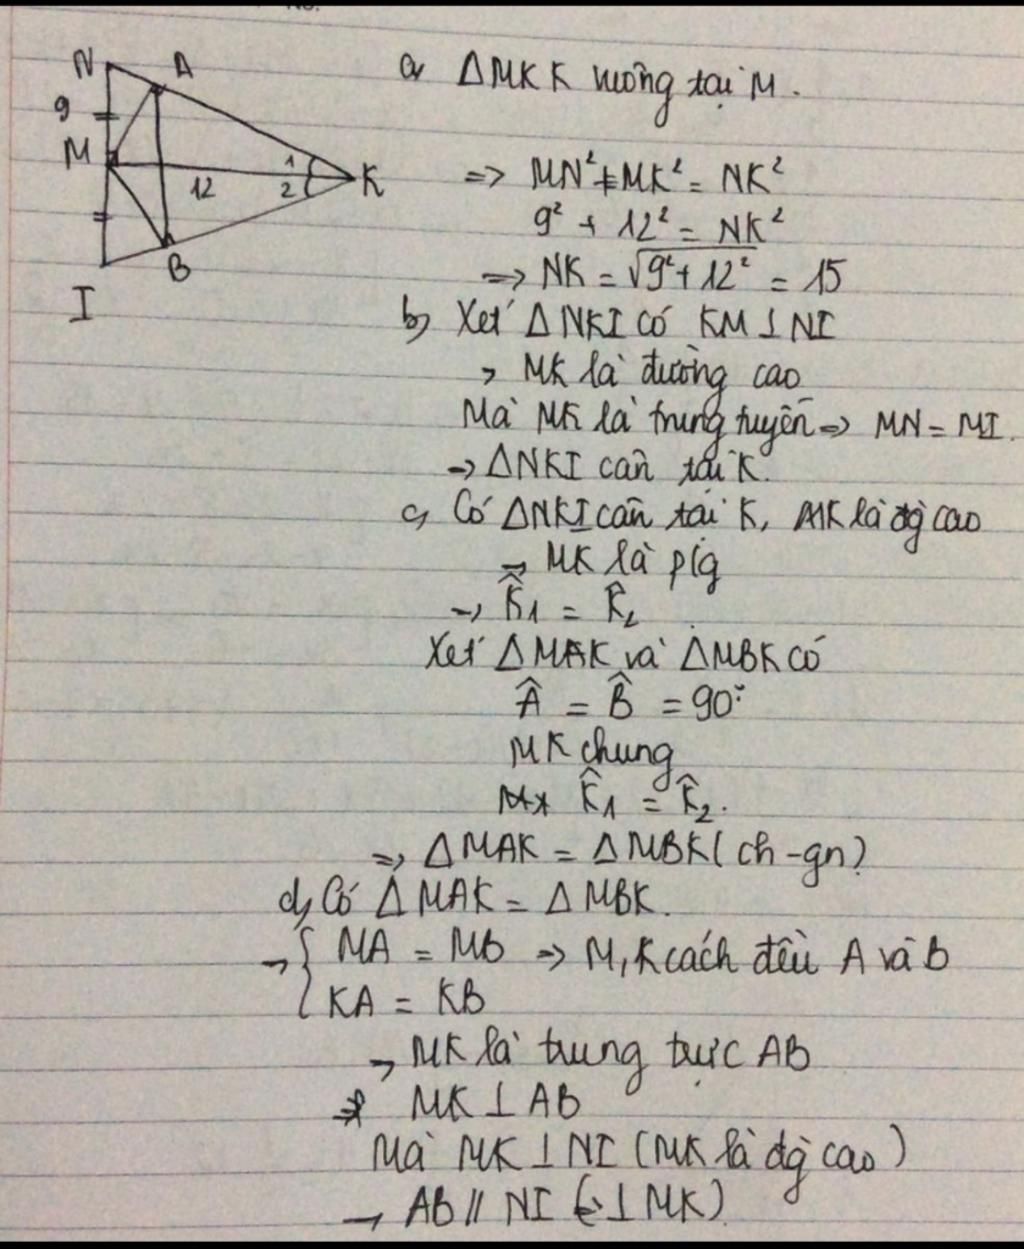 N A
9
M 1 K
12 2
B
I
a, ΔMKK vuông tại M.
=> MN² + MK² = NK²
9² + 12² = NK²
=> NK = √9² + 12² = 15
b, Xét ΔNKI có KM ⊥ NI
→ MK là đường cao
Mà MK là trung tuyến => MN = MI.
→ ΔNKI cân tại K.
c, Có ΔNKI cân tại K, MK là đg cao
→ MK là p/g
→ K̂1 = K̂2
Xét ΔMAK và ΔMBK có
Â = B̂ = 90°
MK chung
K̂1 = K̂2.
=> ΔMAK = ΔMBK (ch-gn)
d, Có ΔMAK = ΔMBK.
→ { MA = MB => M, K cách đều A và B
KA = KB
→ MK là trung trực AB
=> MK ⊥ AB
Mà MK ⊥ NI (MK là đg cao)
→ AB // NI (⊥ MK)